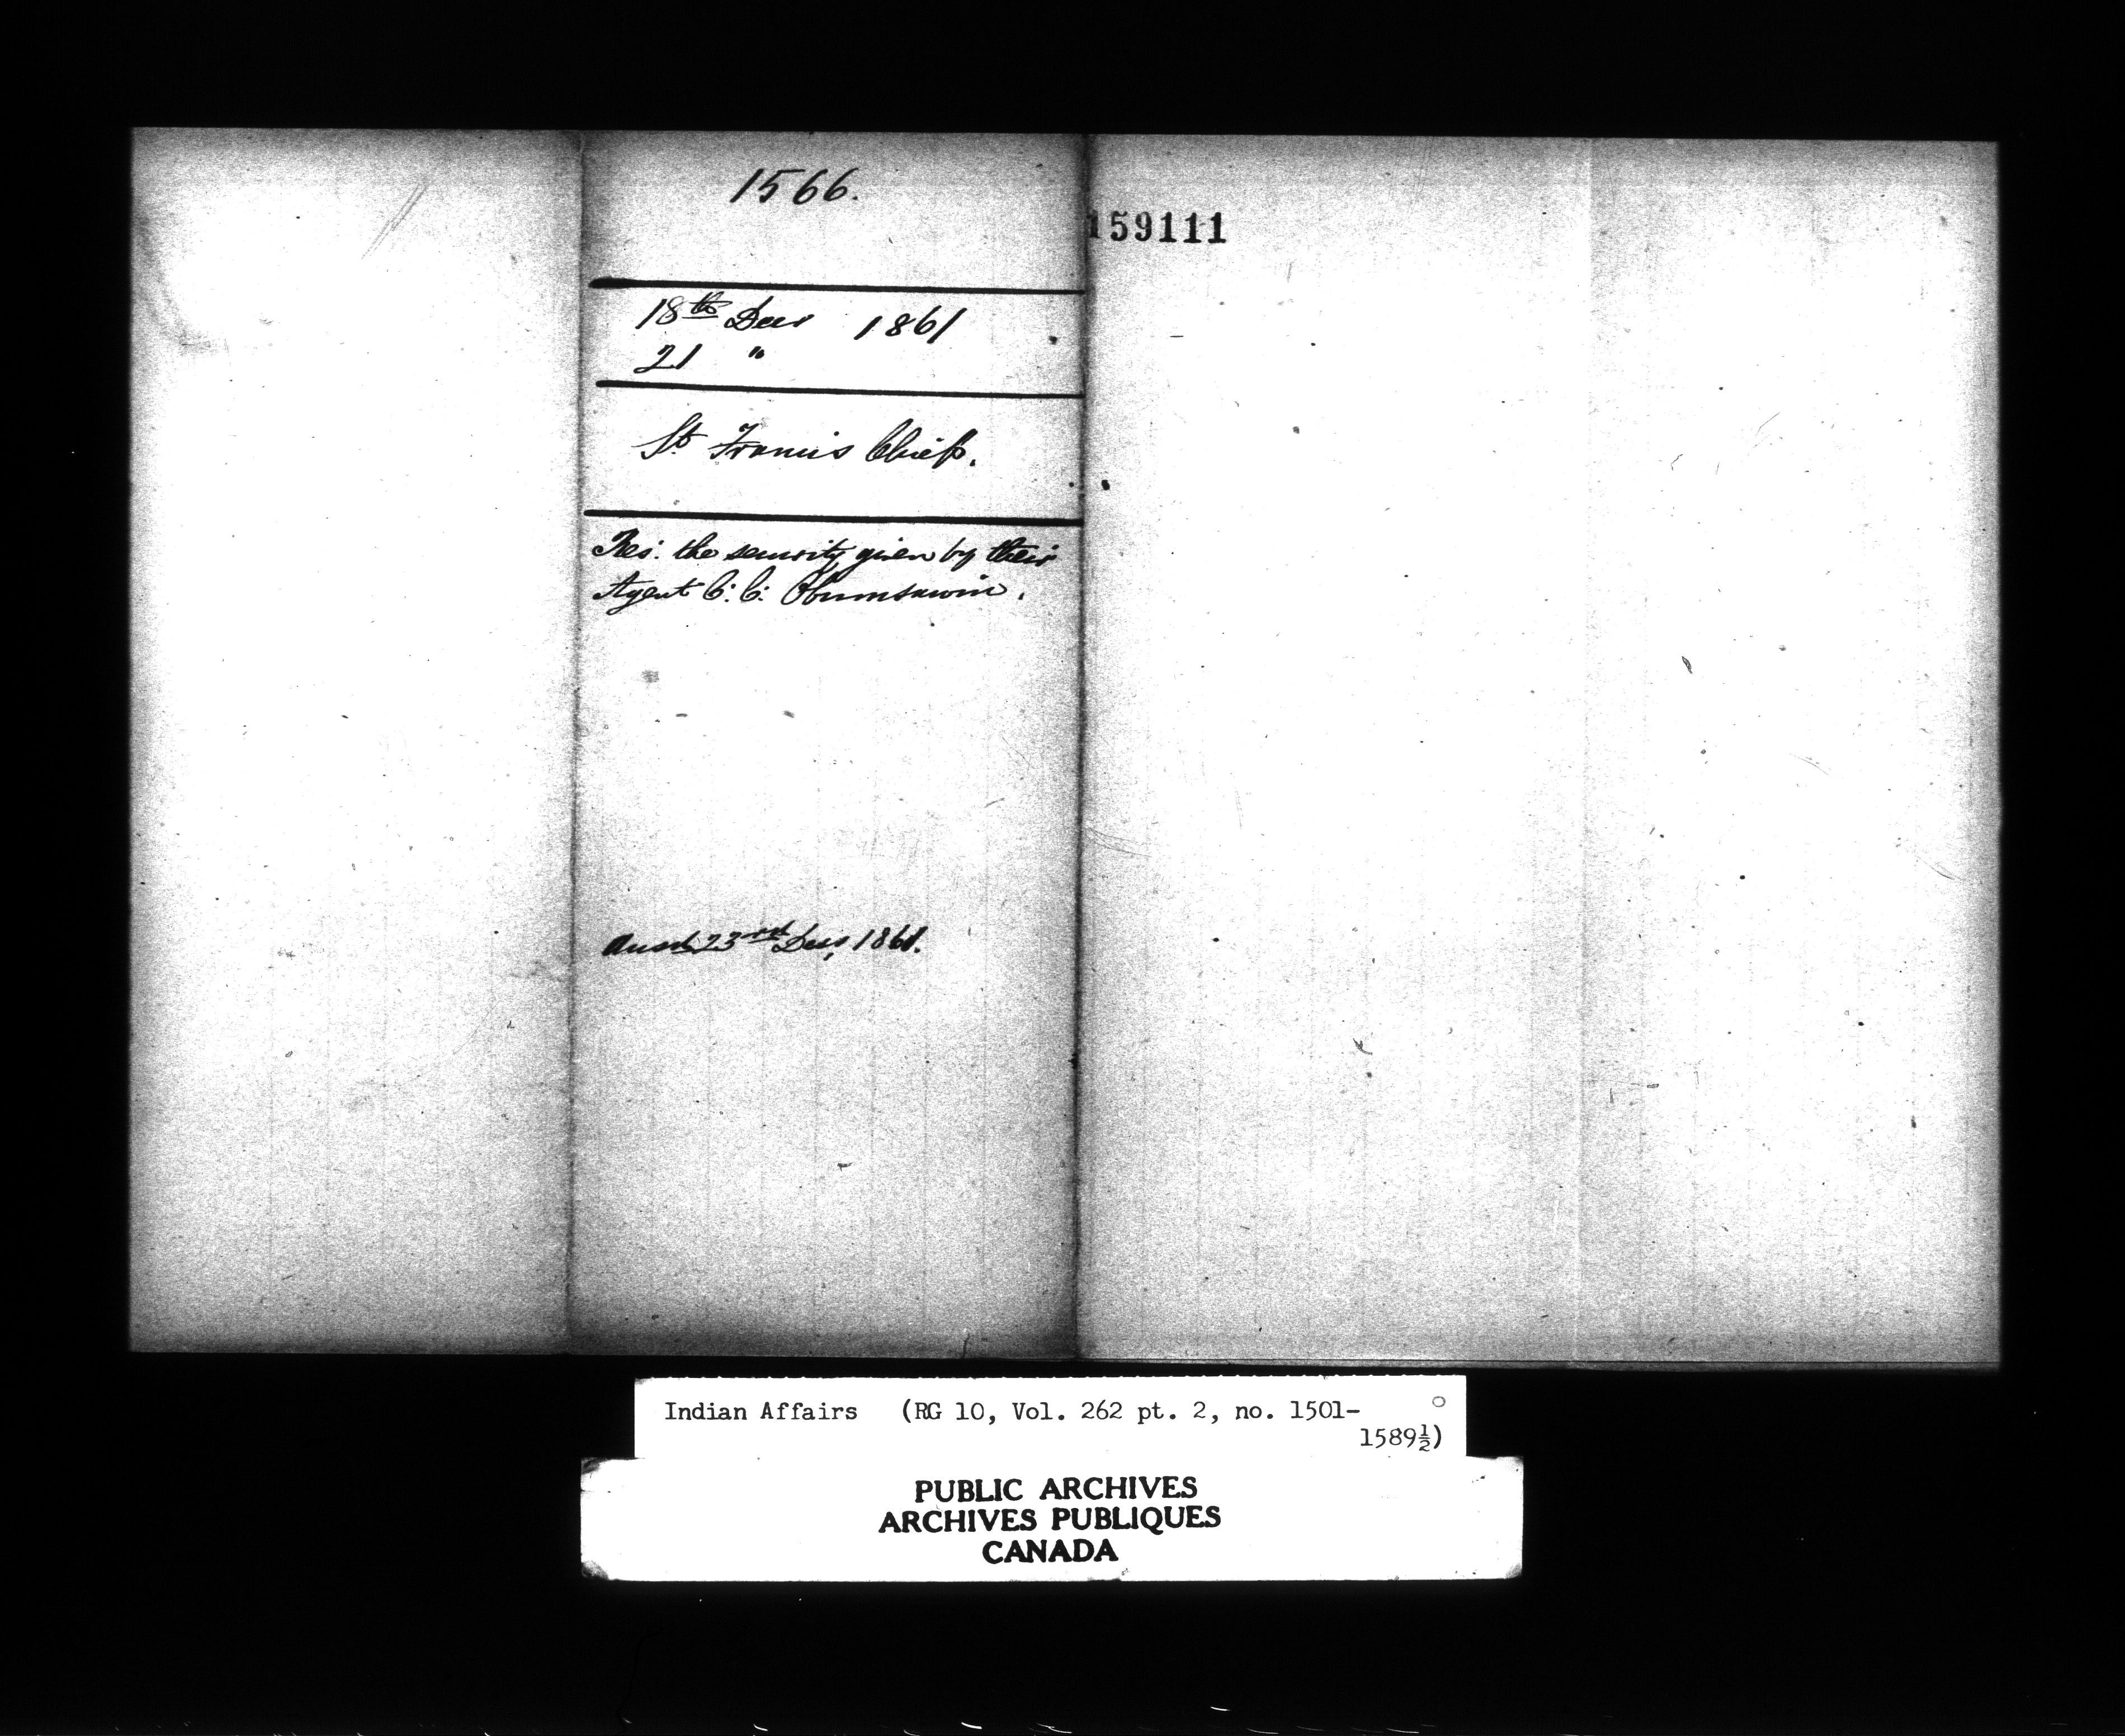 1566.
159111
18th Decr 1861
21 "
St Francis Chiefs.
Res: the security given by their
Agent C: C: Obumsawin.
Ansd 23rd Decr, 1861.
Indian Affairs (RG 10, Vol. 262 pt. 2, no. 1501-
1589½)
PUBLIC ARCHIVES
ARCHIVES PUBLIQUES
CANADA